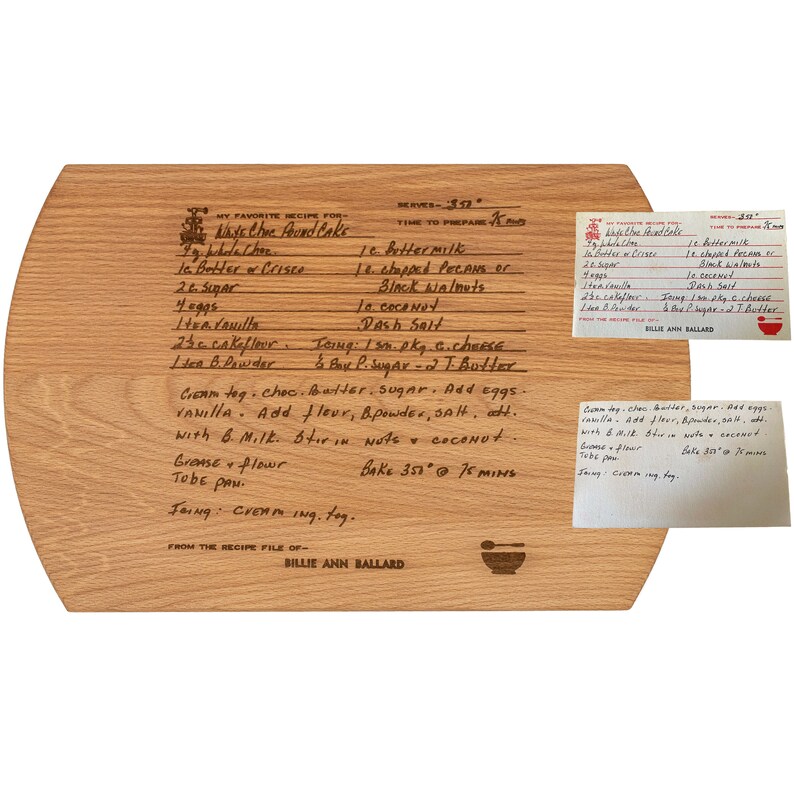 SERVES- 350°
MY FAVORITE RECIPE FOR-
TIME TO PREPARE 75 mins
White Choc Pound Cake
4 oz. White Choc. 1 c. Buttermilk
1c. Butter or Crisco 1 c. chopped Pecans or
2 c. Sugar Black Walnuts
4 eggs 1 c. coconut
1 tea. vanilla Dash Salt
2½ c. cakeflour. Icing: 1 sm. pkg. c. cheese
1 tea B. Powder ½ Box P. Sugar - 2 T. Butter
Cream tog. choc. Butter, sugar. Add eggs.
vanilla. Add flour, B.powder, salt, alt.
with B. Milk. Stir in nuts & coconut.
Grease & flour Bake 350° @ 75 mins
Tube pan.
Icing: Cream ing. tog.
FROM THE RECIPE FILE OF-
BILLIE ANN BALLARD
SERVES- 350°
MY FAVORITE RECIPE FOR-
TIME TO PREPARE 75 mins
White Choc Pound Cake
White Choc. 1 c. Buttermilk
1c. Butter or Crisco 1 c. chopped Pecans or
2 c. Sugar Black Walnuts
4 eggs 1 c. coconut
1 tea. vanilla Dash Salt
2½ c. cakeflour. Icing: 1 sm. pkg. c. cheese
1 tea B. Powder ½ Box P. Sugar - 2 T. Butter
FROM THE RECIPE FILE OF-
BILLIE ANN BALLARD
Cream tog. choc. Butter, sugar. Add eggs.
vanilla. Add flour, B.powder, salt, alt.
with B. Milk. Stir in nuts & coconut
Grease & flour Bake 350° @ 75 mins
Tube pan.
Icing: Cream ing. tog.